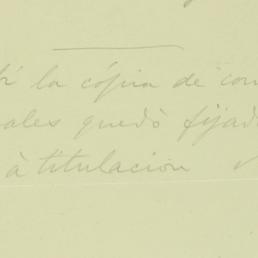 la cópia de con
ales quedó fijad
à titulacion